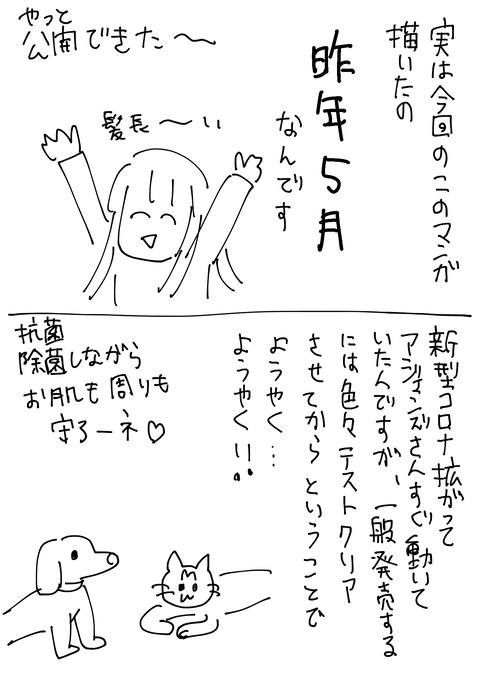 実は今回のこのマンガ
描いたの
昨年5月
なんです
やっと
公開できた〜
髪長〜い
新型コロナ拡がって
アジェンズさんすぐ動いて
いたんですが、一般発売する
には色々テストクリア
させてからということで
ようやく…
ようやく!!
抗菌
除菌しながら
お肌も周りも
守ろーネ♡